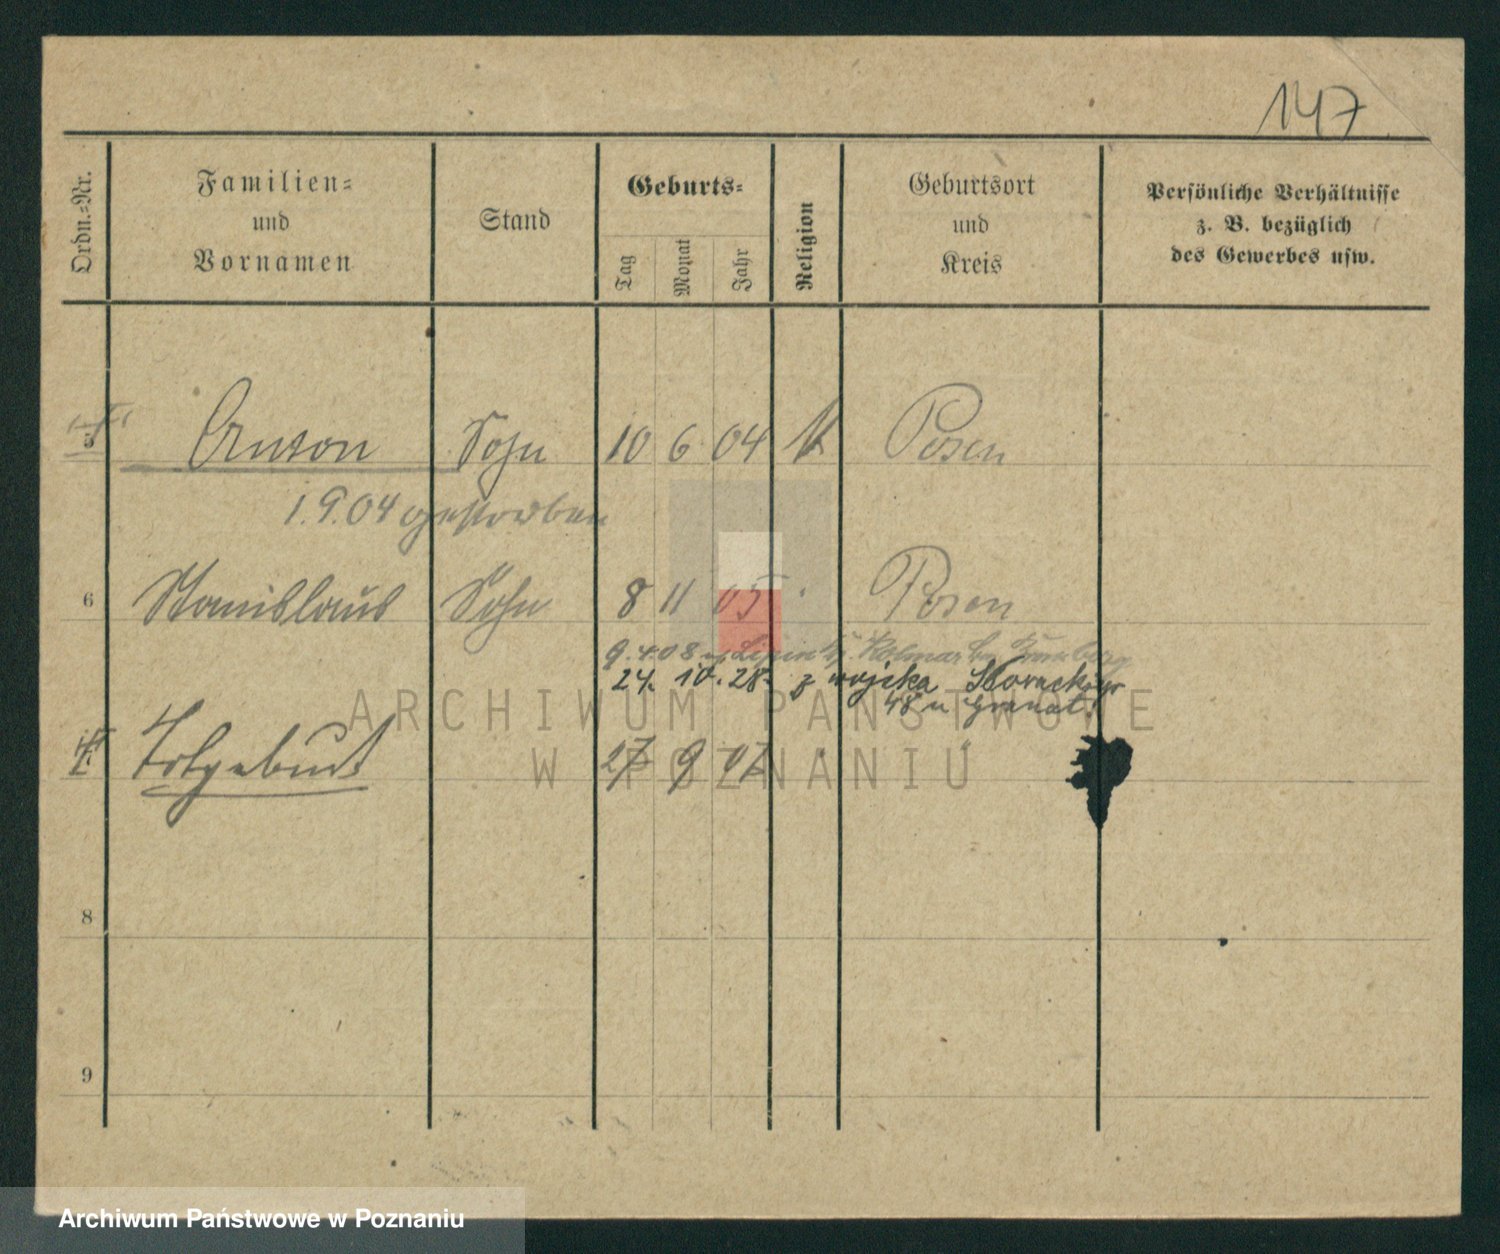 147
Ordn.-Nr.
Familien-
und
Vornamen
Stand
Geburts-
Tag
Monat
Jahr
Religion
Geburtsort
und
Kreis
Persönliche Verhältnisse
z. B. bezüglich
des Gewerbes usw.
5 Anton Sohn 10 6 04 k Posen
1.9.04 gestorben
6 Stanislaus Sohn 8 11 05 " Posen
9.4.08 Lipin Kolmar
24. 10. 28. z wojska
7 Totgeburt 27 9 07
ARCHIWUM PAŃSTWOWE
W POZNANIU
8
9
Archiwum Państwowe w Poznaniu